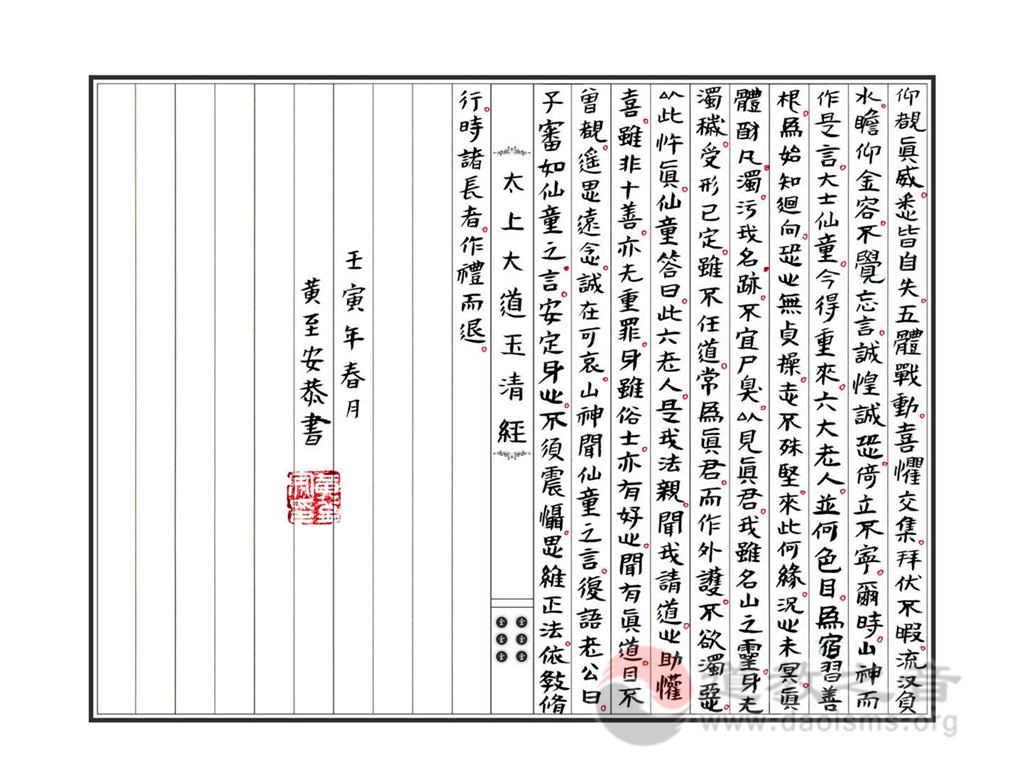 仰覩真威。悉皆自失。五體戰動。喜懼交集。拜伏不暇。流汗負
水。瞻仰金容。不覺忘言。誠惶誠恐。倚立不寧。爾時。山神而
作是言。大士仙童。今得重來。六大老人。並何色目。為宿習善
根。為始知迴向。恐心無貞操。志不殊堅。來此何緣。況心未冥真
體。酎凡濁。污我名跡。不宜尸臭。以見真君。我雖名山之靈。身无
濁穢。受形已定。雖不任道。常為真君。而作外護。不欲濁惡。
以此忤真。仙童答曰。此六老人。是我法親。聞我請道。心助懽
喜。雖非十善。亦无重罪。身雖俗士。亦有好心。聞有真道。目不
曾覩。遥思遠念。誠在可哀。山神聞仙童之言。復語老公曰。
子審如仙童之言。安定身心。不須震懾。思維正法。依教脩
太上大道玉清経
行。時諸長者。作禮而退。
壬寅年春月
黃至安恭書
道教之音
www.daoisms.org